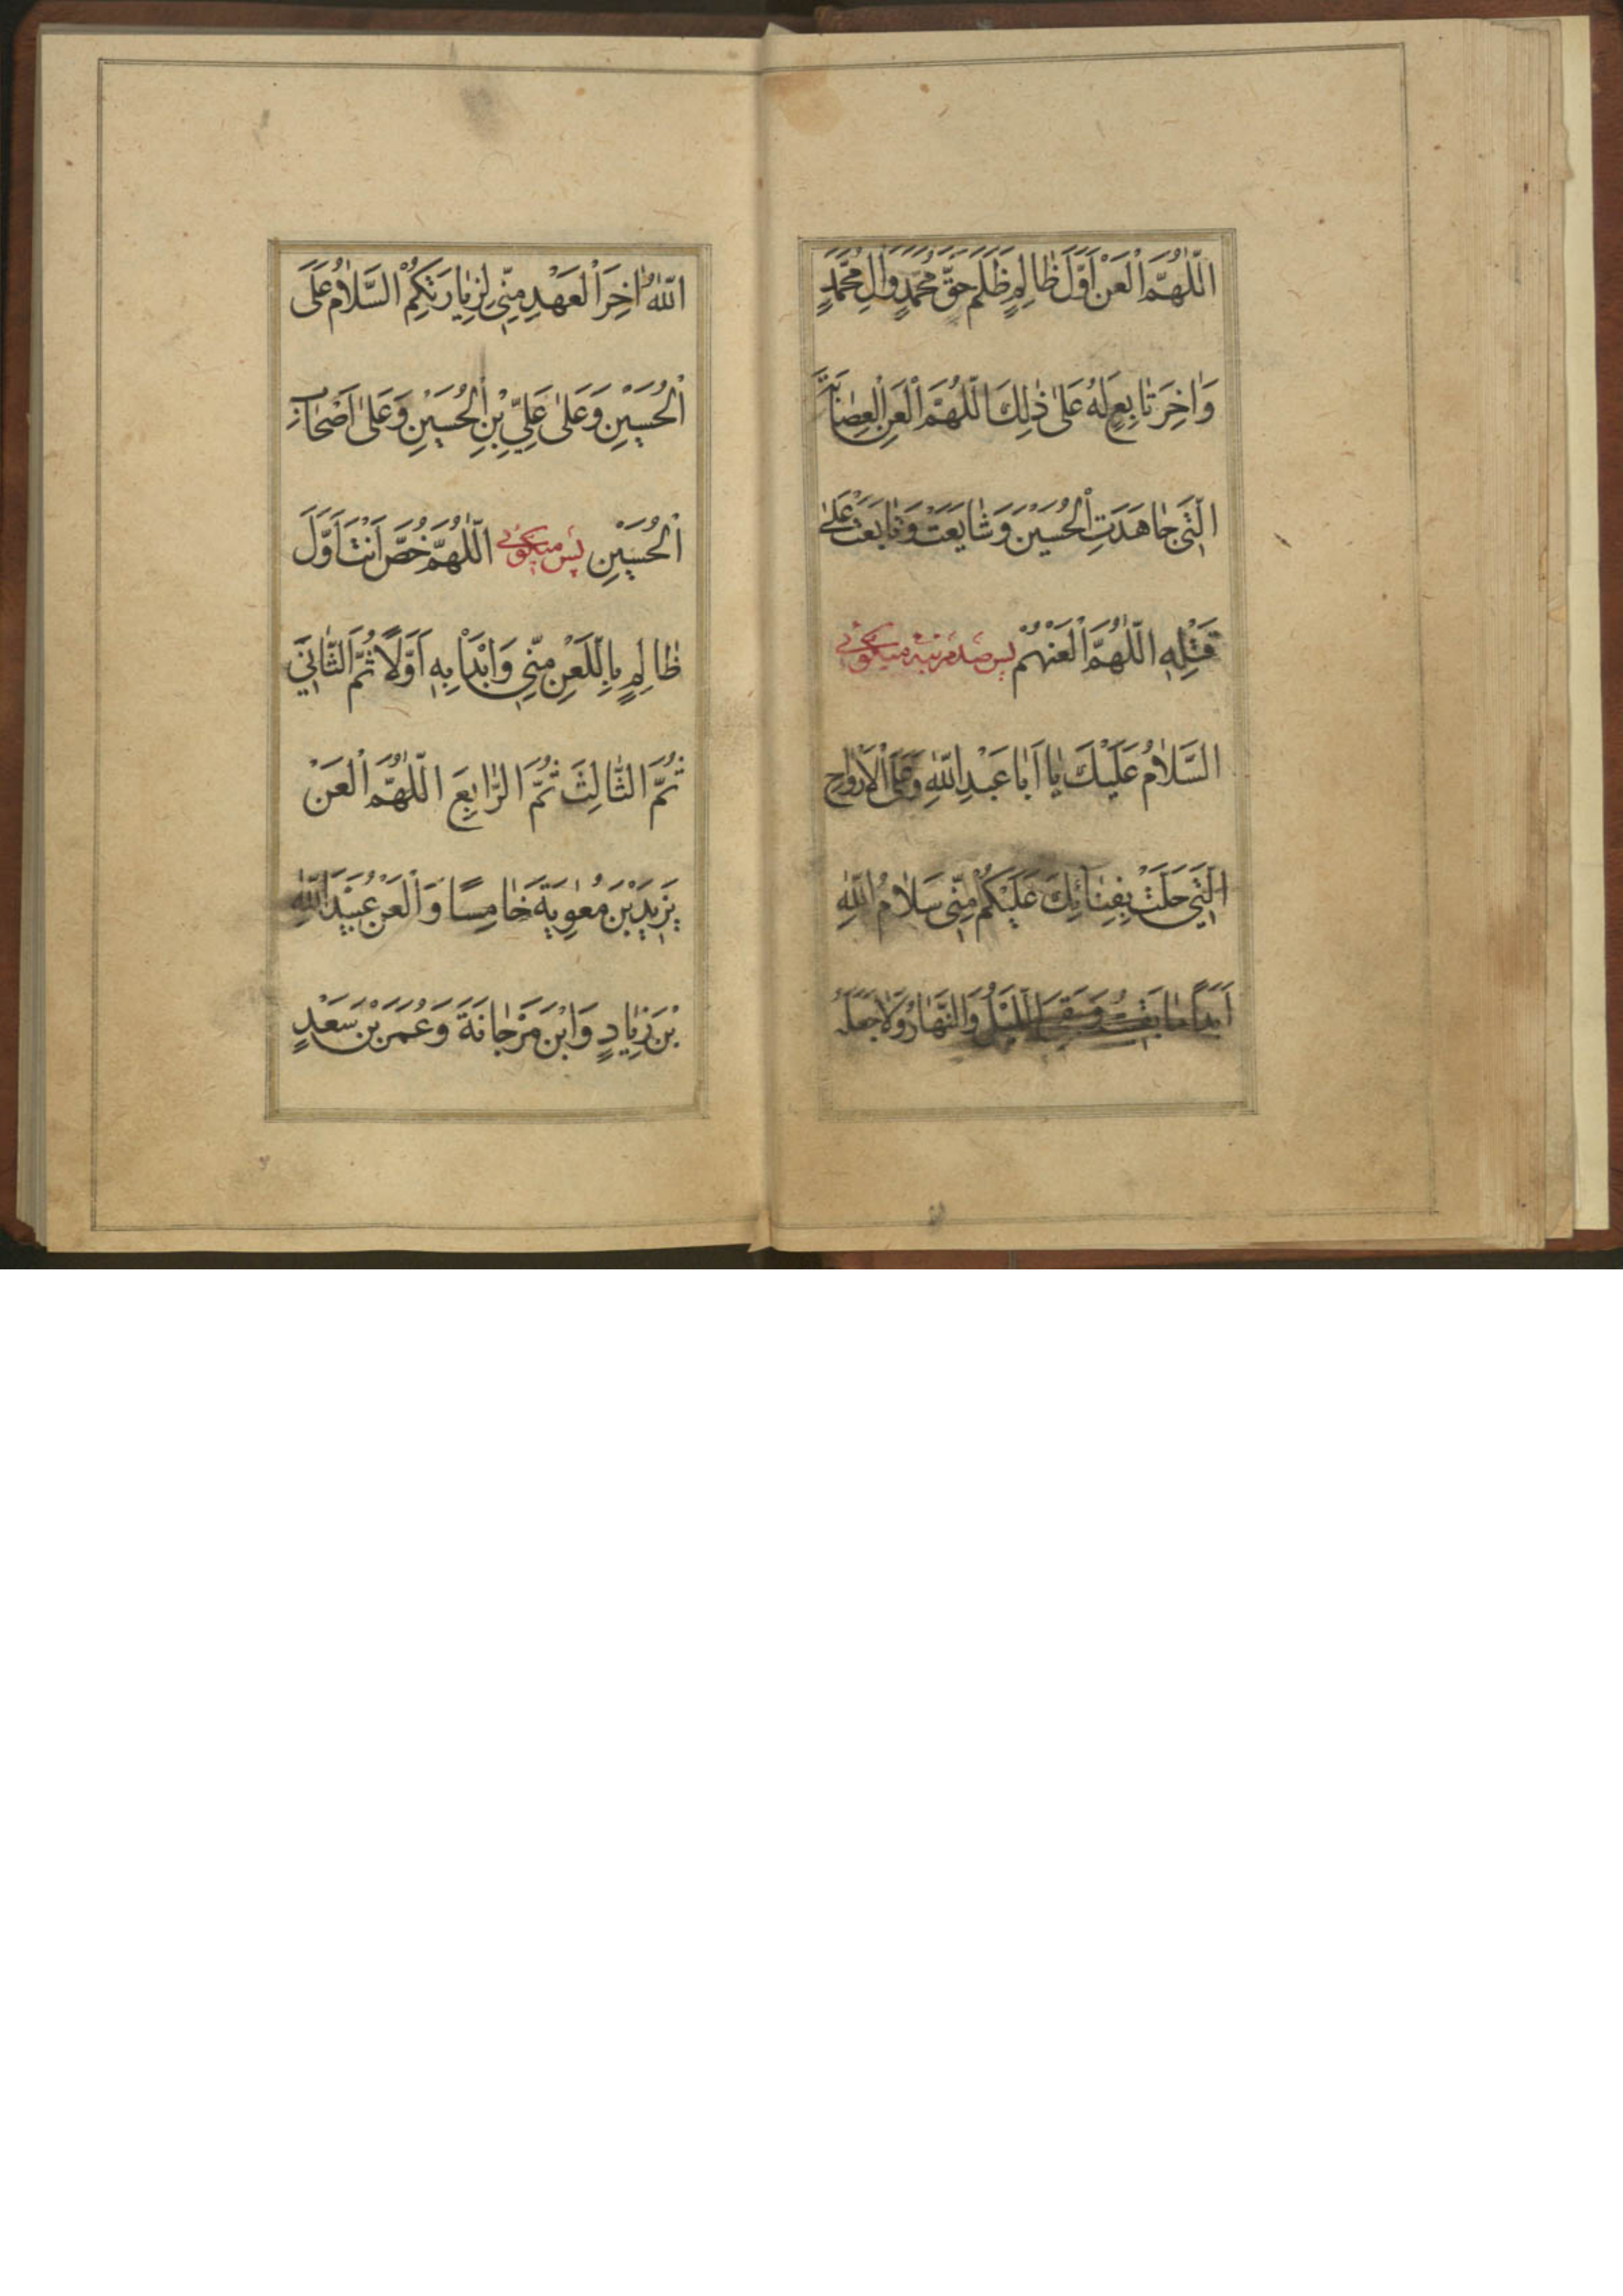 اَللّٰهُمَّ الْعَنْ اَوَّلَ ظٰالِمٍ ظَلَمَ حَقَّ مُحَمَّدٍ وَاٰلِ مُحَمَّدٍ
وَاٰخِرَ تٰابِعٍ لَهُ عَلىٰ ذٰلِكَ اَللّٰهُمَّ الْعَنِ الْعِصٰابَةَ
الَّتِي جٰاهَدَتِ الْحُسَيْنَ وَشٰايَعَتْ وَتٰابَعَتْ عَلىٰ
قَتْلِهِ اَللّٰهُمَّ الْعَنْهُمْ پس صد مرتبه میگوئی
اَلسَّلٰامُ عَلَيْكَ يٰا اَبٰا عَبْدِ اللّٰهِ وَعَلَى الْاَرْوٰاحِ
الَّتِي حَلَّتْ بِفِنٰائِكَ عَلَيْكُمْ مِنِّي سَلٰامُ اللّٰهِ
اَبَدًا مٰا بَقيتُ وَبَقِيَ اللَّيْلُ وَالنَّهٰارُ وَلٰا جَعَلَهُ
اللّٰهُ اٰخِرَ الْعَهْدِ مِنِّي لِزِيٰارَتِكُمْ اَلسَّلٰامُ عَلَى
الْحُسَيْنِ وَعَلىٰ عَلِيِّ بْنِ الْحُسَيْنِ وَعَلىٰ اَصْحٰابِ
الْحُسَيْنِ پس میگوئی اَللّٰهُمَّ خُصَّ اَنْتَ اَوَّلَ
ظٰالِمٍ بِاللَّعْنِ مِنِّي وَابْدَأْ بِهِ اَوَّلًا ثُمَّ الثّٰانِيَ
ثُمَّ الثّٰالِثَ ثُمَّ الرّٰابِعَ اَللّٰهُمَّ الْعَنْ
يَزيدَ بْنَ مُعٰوِيَةَ خٰامِسًا وَالْعَنْ عُبَيْدَ اللّٰهِ
بْنَ زِيٰادٍ وَابْنَ مَرْجٰانَةَ وَعُمَرَ بْنَ سَعْدٍ